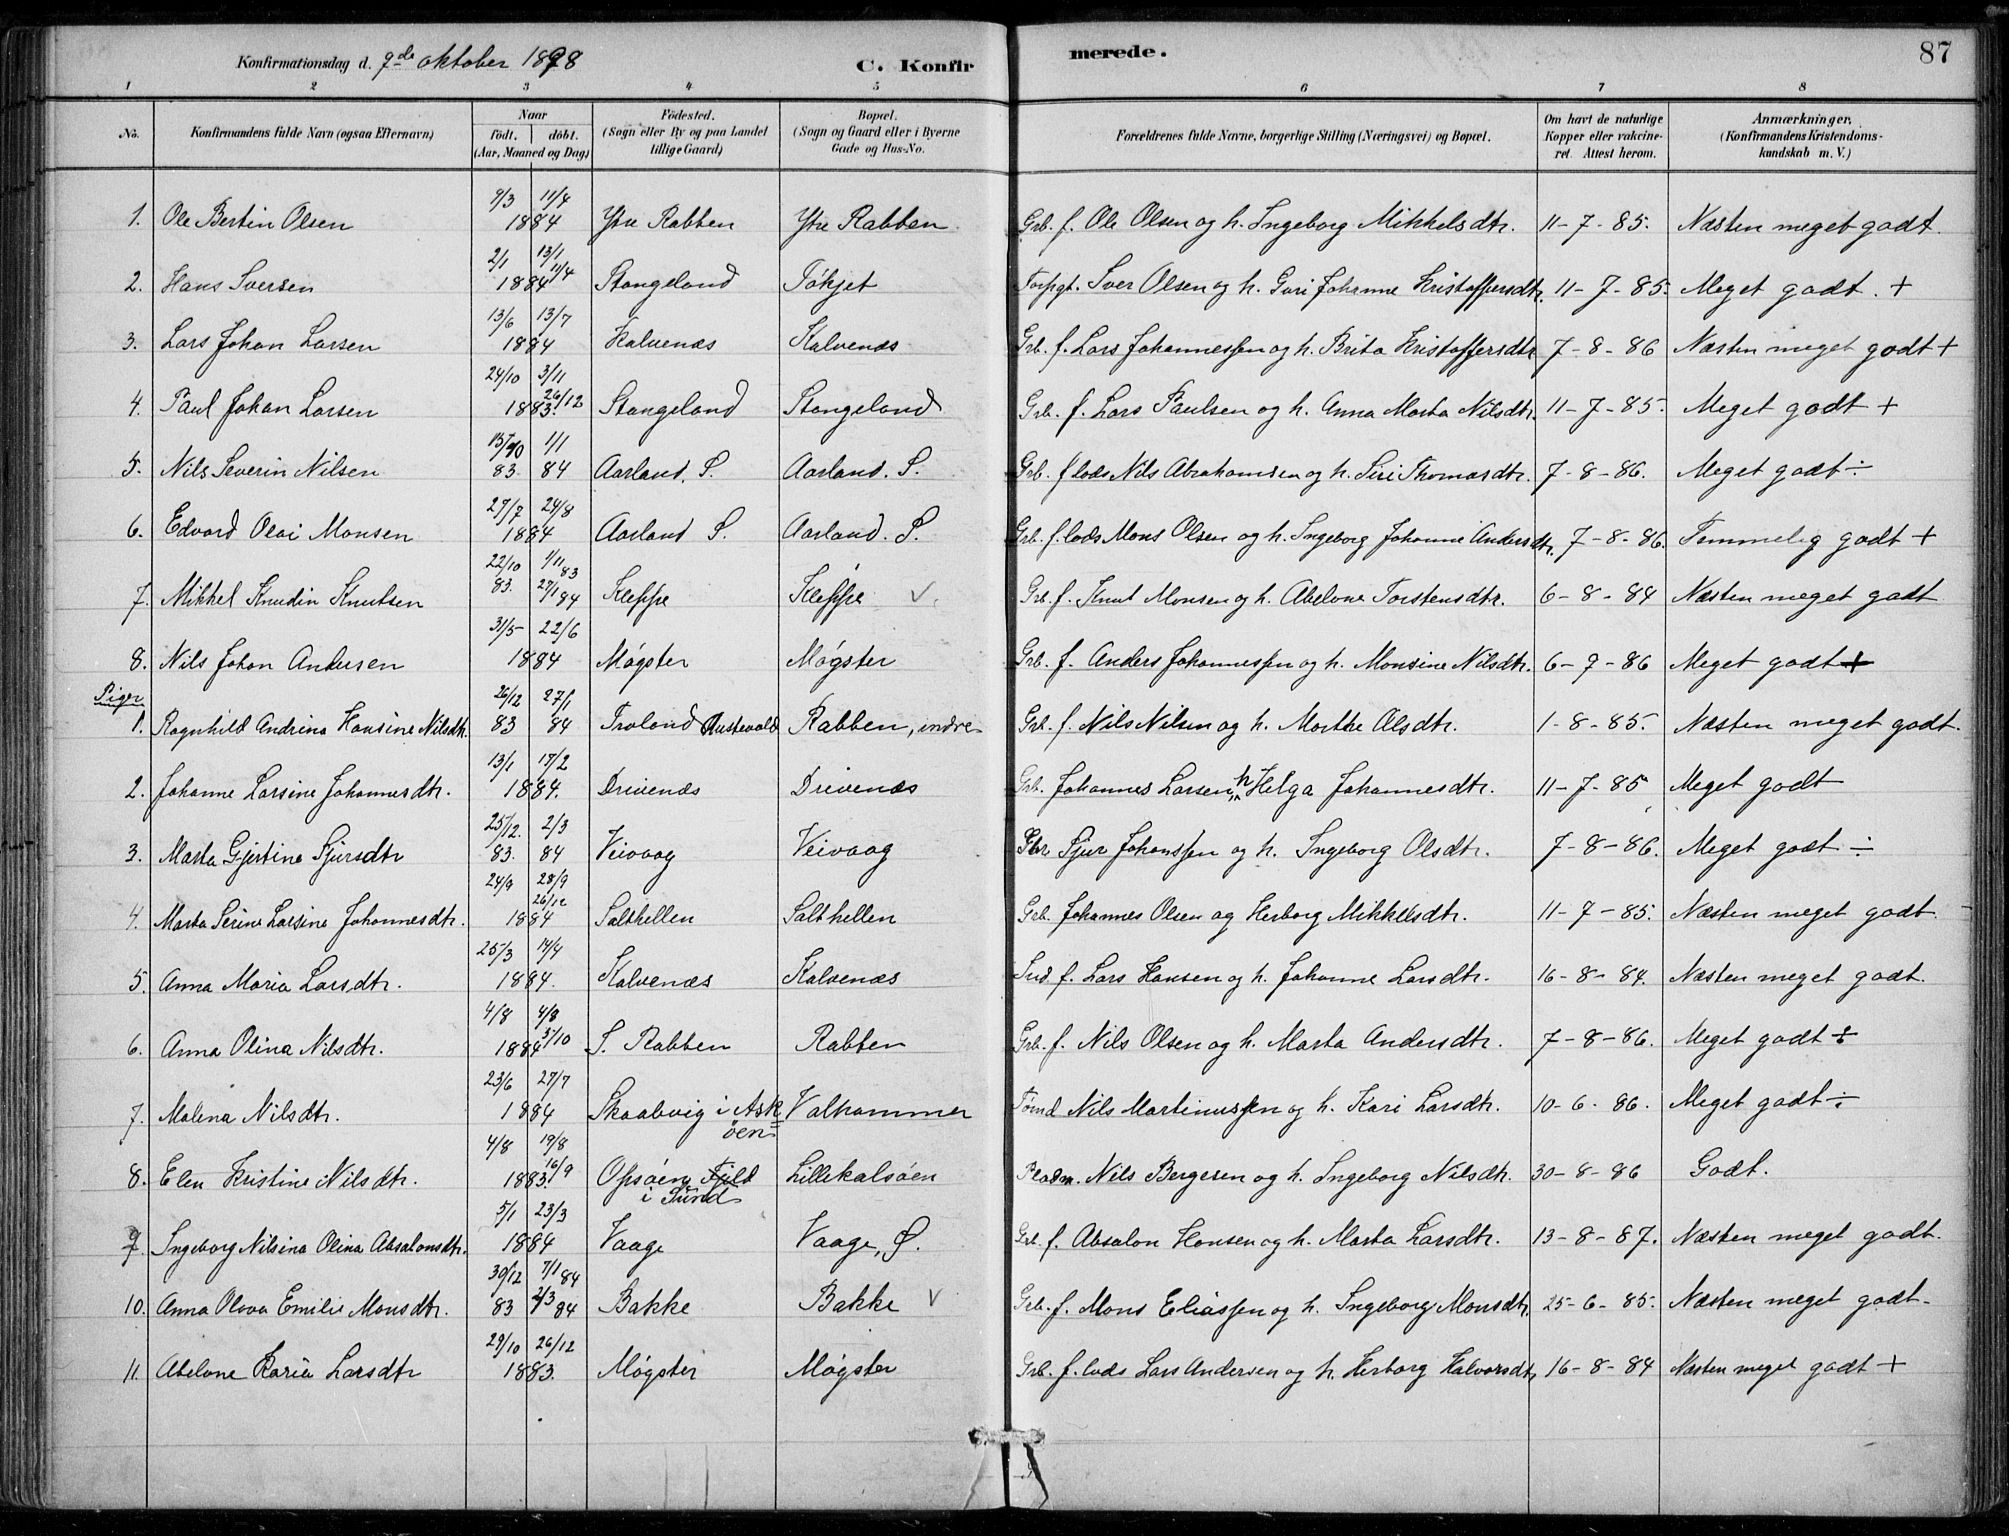 Konfirmationsdag d. 9de oktober 1898
C. Konfirmerede.
87
1 2 3 4 5 6 7 8
No. Konfirmandens fulde Navn (ogsaa Efternavn) Naar födt. döbt. (Aar, Maaned og Dag) Födested. (Sogn eller By og paa Landet tillige Gaard) Bopæl. (Sogn og Gaard eller i Byerne Gade og Hus-No. Forældrenes fulde Navne, borgerlige Stilling (Næringsvei) og Bopæl. Om havt de naturlige Kopper eller vakcineret. Attest herom. Anmærkninger. (Konfirmandens Kristendomskundskab m. V.)
1. Ole Bertin Olsen 9/3 11/4 1884 Ytre Rabben Ytre Rabben Grb. f. Ole Olsen og h. Ingeborg Mikkelsdtr. 11-7-85. Næsten meget godt.
2. Hans Iversen 2/1 13/1 11/4 1884 Stangeland Tökjet Iver Olsen og h. Guri Johanne Kristoffersdtr. 11-7-85. Meget godt. +
3. Lars Johan Larsen 13/6 13/7 1884 Kalvenæs Kalvenæs Grb. f. Lars Johannessen og h. Brita Kristoffersdtr 7-8-86 Næsten meget godt +
4. Paul Johan Larsen 24/10 3/11 26/12 1883. Stangeland Stangeland Grb. f. Lars Paulsen og h. Anna Marta Nilsdtr. 11-7-85. Meget godt +
5. Nils Severin Nilsen 15/10 83. 1/1 84 Aarland. S. Aarland. S. Grb. f lods Nils Abrahamsen og h. Siri Thomasdtr. 7-8-86. Meget godt ÷
6. Edvard Olai Monsen 27/7 24/8 1884 Aarland S. Aarland. S. Grb. f. lods Mons Olsen og h. Ingeborg Johanne Andersdtr. 7-8-86. Temmelig godt +
7. Mikkel Knudin Knutsen 22/10 83. 1/11 83 27/1 84 Kleppe Kleppe ✓. Grb. f. Knut Monsen og h. Abelone Torstensdtr. 6-8-84 Næsten meget godt
8. Nils Johan Andersen 31/5 22/6 1884 Møgster Møgster Grb. f. Anders Johannessen og h. Monsine Nilsdtr. 6-9-86 Meget godt +
Piger
1. Ragnhild Andrina Hansine Nilsdtr. 26/12 83 27/1 84 Troland Austevold Rabben, indre Grb. f. Nils Nilsen og h. Marthe Olsdtr. 1-8-85. Næsten meget godt.
2. Johanne Larsine Johannesdtr. 13/1 17/2 1884. Drivenæs Drivenæs Grb. Johannes Larsen, h Helga Johannesdtr. 11-7-85 Meget godt
3. Marta Gjertine Sjursdtr 25/12. 83. 2/3 84 Veivaag Veivaag Sjur Johanssen og h. Ingeborg Olsdtr. 7-8-86. Meget godt ÷
4. Marta Serine Larsine Johannesdtr. 24/9 28/9 26/12 1884 Salthellen Salthellen Grb. Johannes Olsen og Herborg Mikkelsdtr. 11-7-85. Næsten meget godt.
5. Anna Maria Larsdtr. 25/3 14/4 1884. Kalvenæs Kalvenæs Ind f. Lars Hansen og h. Johanne Larsdtr. 16-8-84. Næsten meget godt.
6. Anna Olina Nilsdtr. 4/8 4/8 5/10 1884 S. Rabben Rabben Grb. f. Nils Olsen og h. Marta Andersdtr. 7-8-86. Meget godt ÷
7. Malena Nilsdtr. 23/6 27/7 1884 Skaalvig i Askøen Valhammer Nils Martinussen og h. Kari Larsdtr. 10-6-86. Meget godt ÷
8. Elen Kristine Nilsdtr. 4/8 19/8 16/9 1883. Opsøen, Fjeld i Sund Lillekalsöen Nils Bergesen og h. Ingeborg Nilsdtr. 30-8-86 Godt.
9. Ingeborg Nilsina Olina Absalonsdtr. 5/1 23/3 1884 Vaage Vaage, Ø. Grb. f. Absalon Hansen og h. Marta Larsdtr. 13-8-87. Næsten meget godt.
10. Anna Olava Emilie Monsdtr. 30/12 83 7/1 84 2/3 84 Bakke Bakke ✓ Grb. f. Mons Eliassen og h. Ingeborg Monsdtr. 25-6-85. Næsten meget godt.
11. Abelone Karia Larsdtr 29/10 26/12 1883. Møgster Møgster Grb. f. lods Lars Andersen og h. Herborg Halvorsdtr 16-8-84 Næsten meget godt +